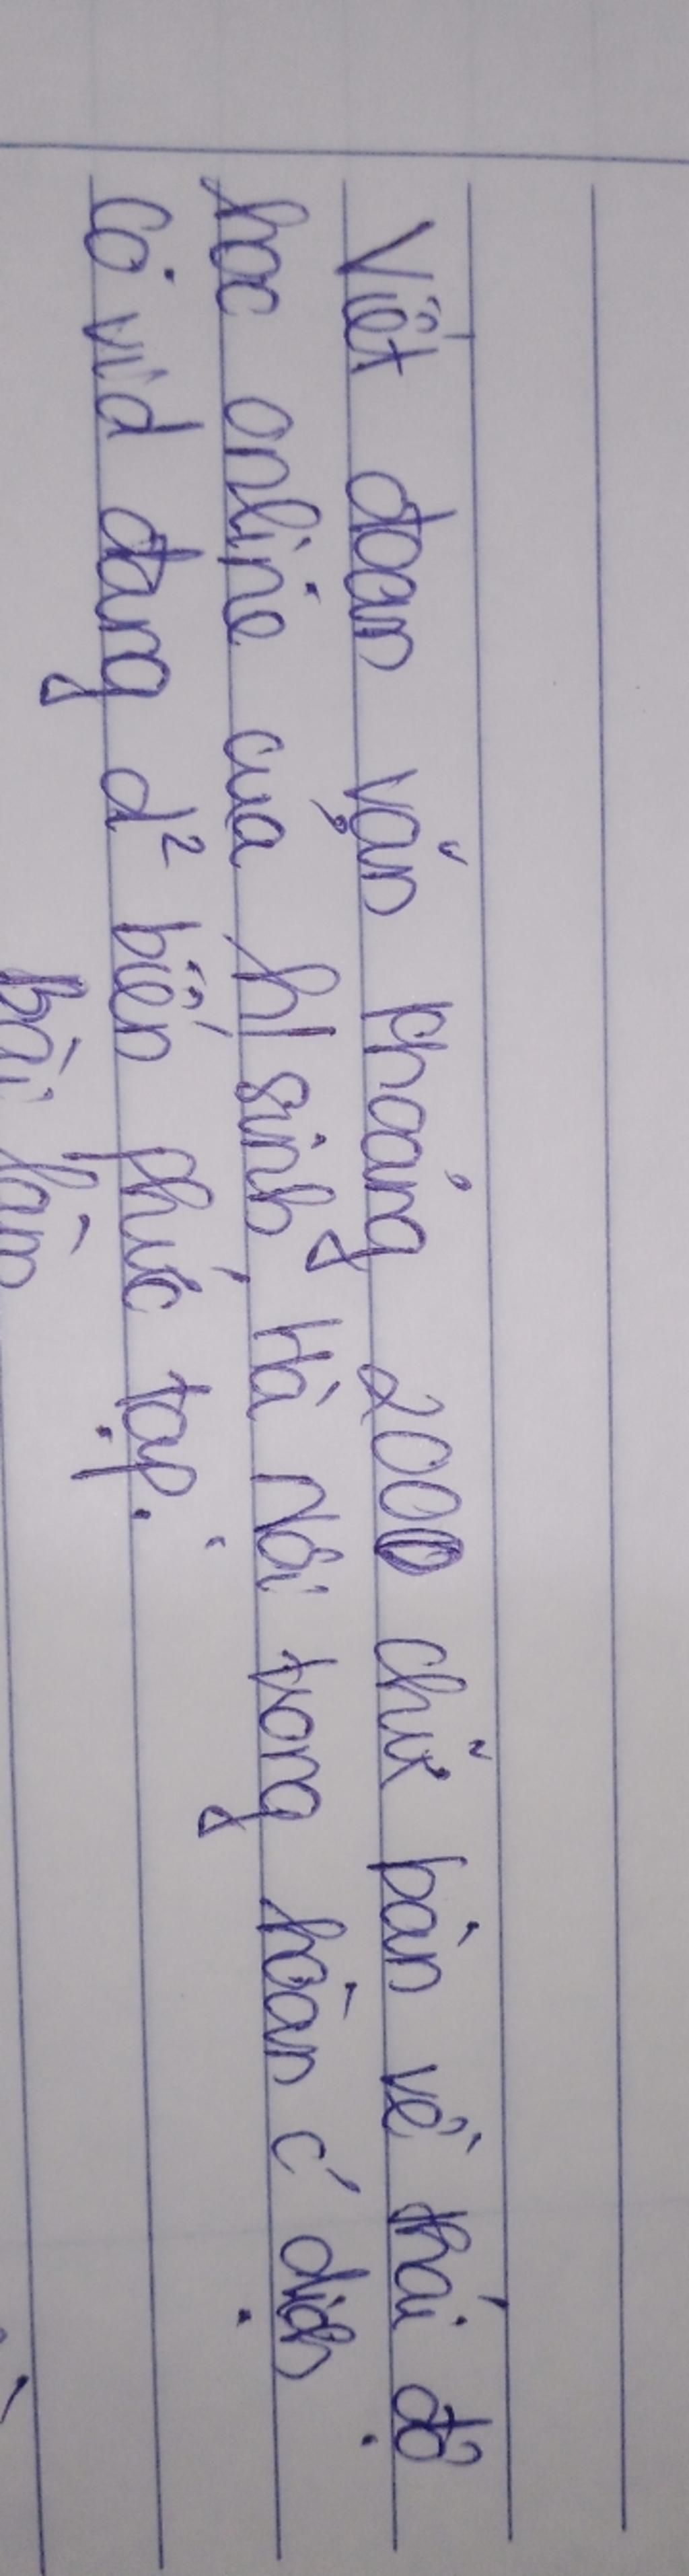 Viết đoạn văn khoảng 2000 chữ bàn về thái độ
học online của h/sinh Hà Nội trong hoàn c' dịch
cô vid đang d² biến phức tạp.
Bài làm